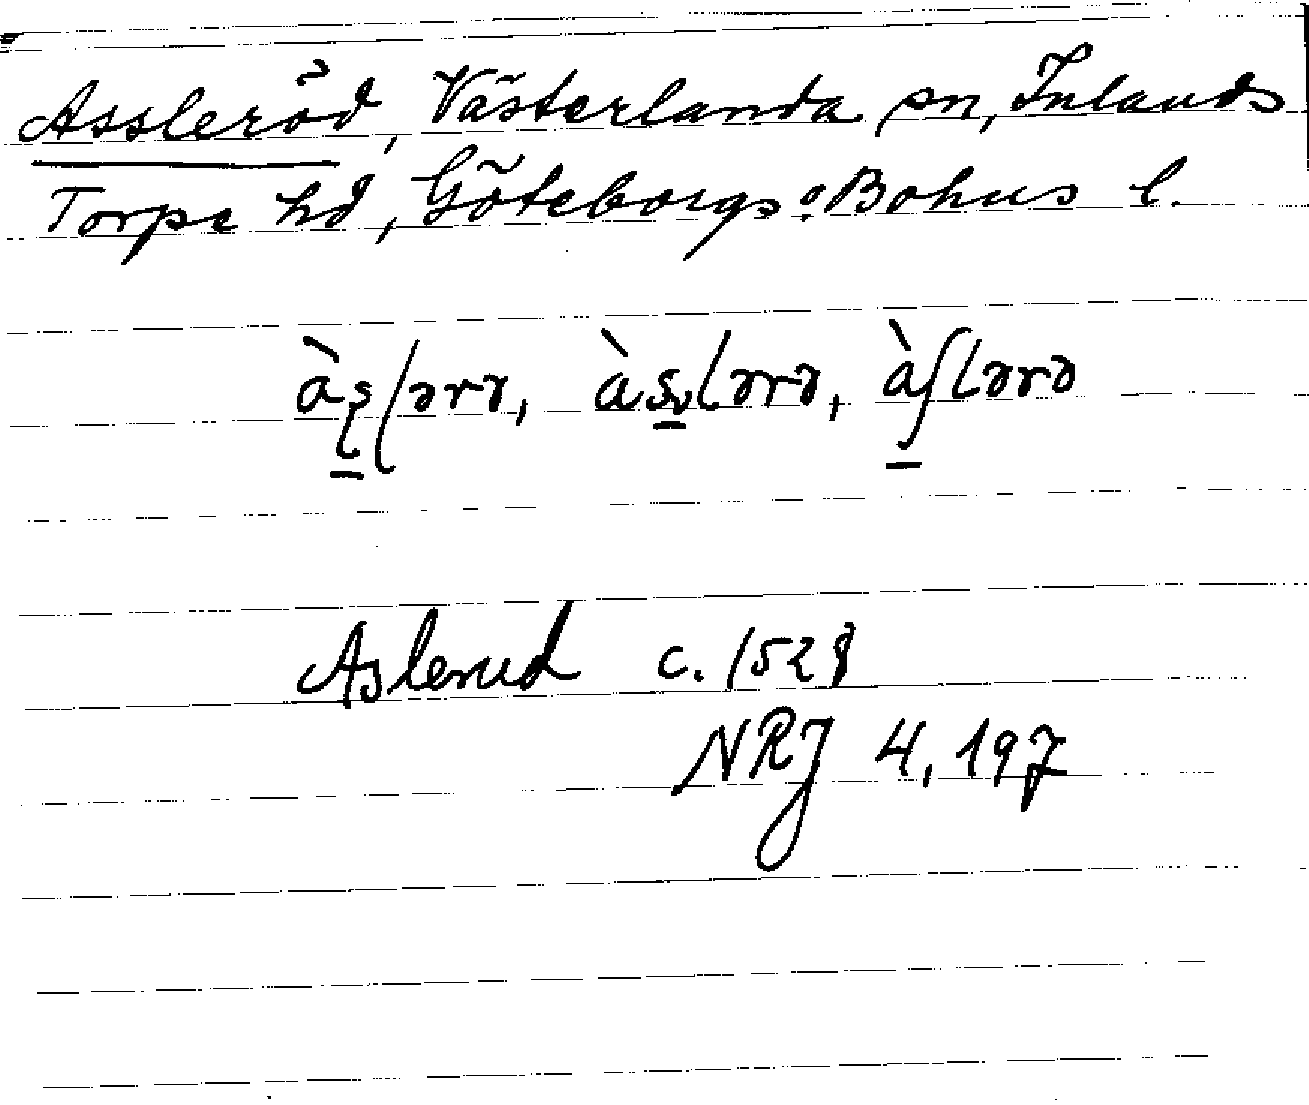 Assleröd, Västerlanda sn, Inlands
Torpe hd, Göteborgs o. Bohus l.
àʂlərə, àslərə, àʃlərə
Aslerud c. 1528
NRJ 4, 197